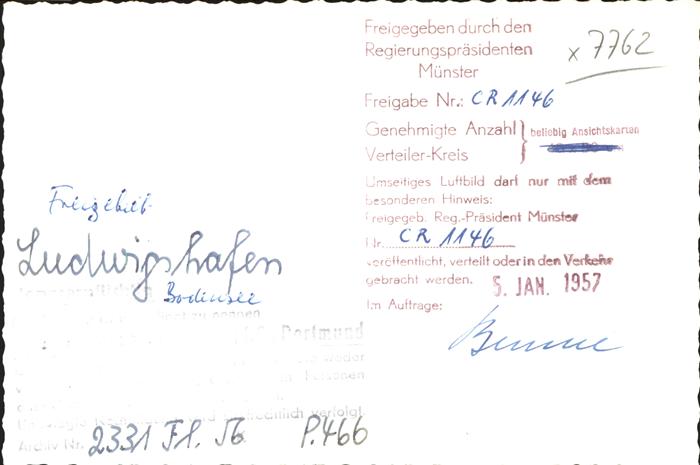 Freigegeben durch den
Regierungspräsidenten
Münster
x 7762
Freigabe Nr.: CR 1146
Genehmigte Anzahl
Verteiler-Kreis
beliebig Ansichtskarten
Umseitiges Luftbild darf nur mit dem
besonderen Hinweis:
Freigegeb. Reg.-Präsident Münster
Nr. CR 1146
veröffentlicht, verteilt oder in den Verkehr
gebracht werden.
5. JAN. 1957
Im Auftrage:
Freigebiet
Ludwigshafen
Bodensee
Dortmund
weder
Personen
verfolgt
Archiv Nr. 2331 Fl. P.466